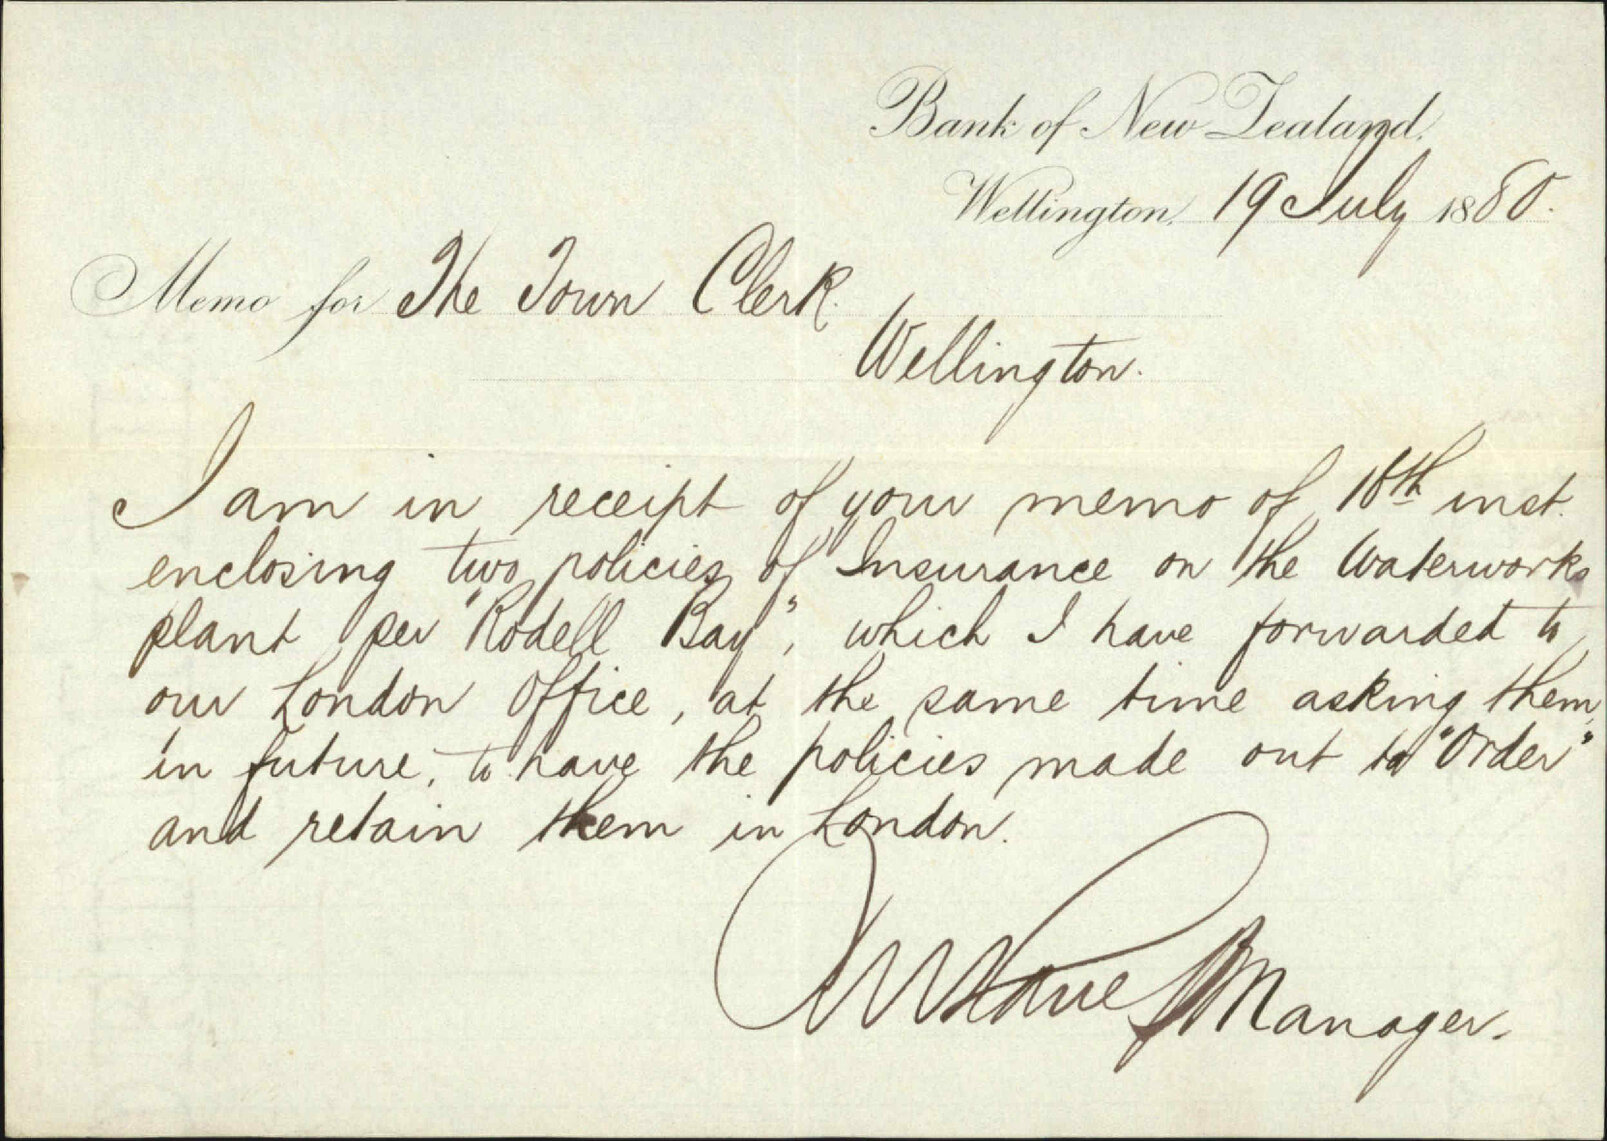 Bank of New Zealand.
Wellington, 19 July 1880.
Memo for The Town Clerk.
Wellington.
I am in receipt of your memo of 18th inst.
enclosing two policies of Insurance on the Waterworks
plant per "Rodell Bay", which I have forwarded to
our London Office, at the same time asking them,
in future, to have the policies made out to "Order"
and retain them in London.
Manager.